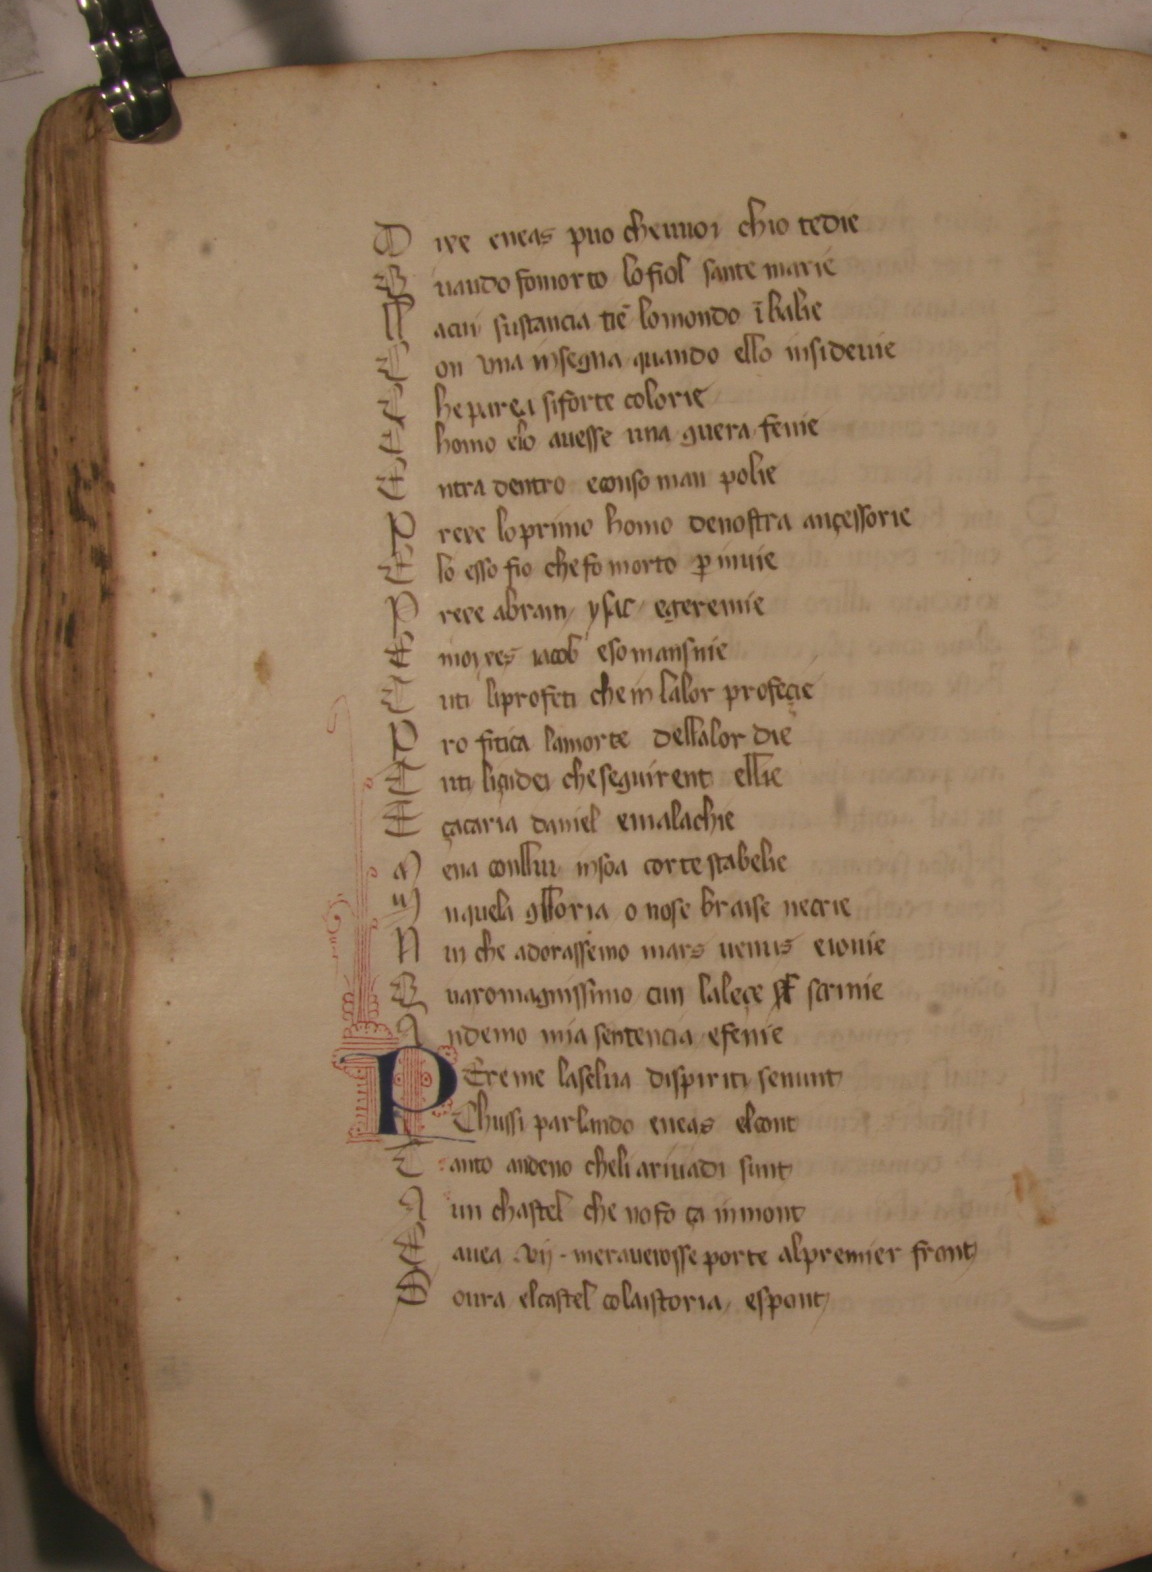 D ire eneas puo che uuoi chio tedie
Q uando fo morto lo fiol sante marie
M a cui sustancia tiē lo mondo ī balie
C on una insegna quando ello insidenie
C he parea si forte colorie
C homo elo auesse una guera fenie
E ntra dentro e conso man polie
P rere lo primo homo de nostra ançessorie
E lo esso fio che fo morto p inuie
P rere abram ysac e geremie
E moises iacob e so mansnie
T uti li profeti che in la lor profeçie
P rofitiça la morte della lor die
T uti li çudei che seguirent ellie
E çacaria daniel e malachie
M ena con llui in soa corte stabelie
I n quela glloria o no se braise necrie
N ui che adorassemo mars uenus e iouie
Q uaro magnissimo cun la leçe scrinie
A ndemo mia sentencia e fenie
PEr eme la selua di spiriti senunt
Chussi parlando eneas el cont
T anto andeno che li ariuadi sunt
A un chastel che no fo ça in mont
E auea .vij. meraueiosse porte al premier front
D oura el castel co la istoria espont